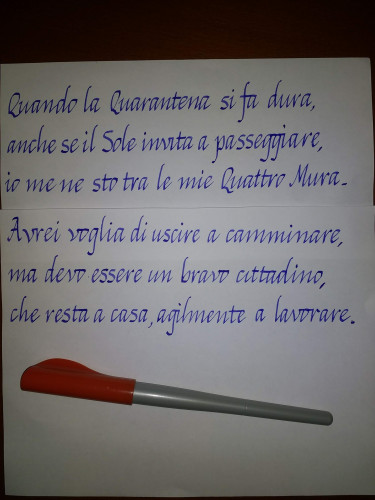 Quando la Quarantena si fa dura,
anche se il Sole invita a passeggiare,
io me ne sto tra le mie Quattro Mura.
Avrei voglia di uscire a camminare,
ma devo essere un bravo cittadino,
che resta a casa, agilmente a lavorare.